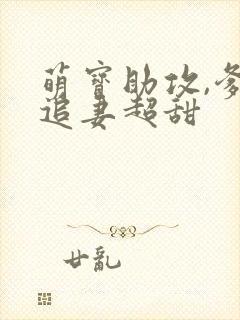 萌寶助攻,爹
追妻超甜
廿亂